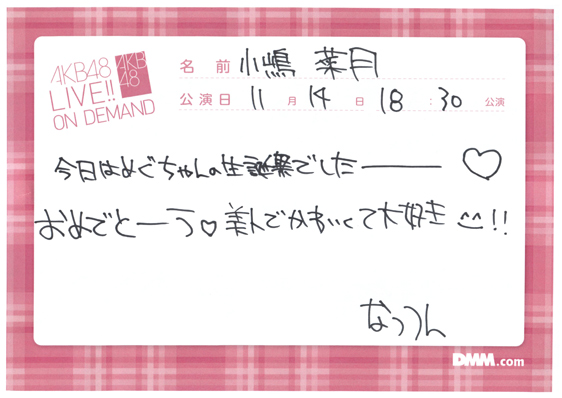 AKB48
LIVE!!
ON DEMAND
AKB
48
名前 小嶋 菜月
公演日 11月14日 18:30公演
今日はめぐちゃんの生誕祭でしたーーー♡
おめでとーう♡美人でかわいくて大好き^^!!
なっつん
DMM.com